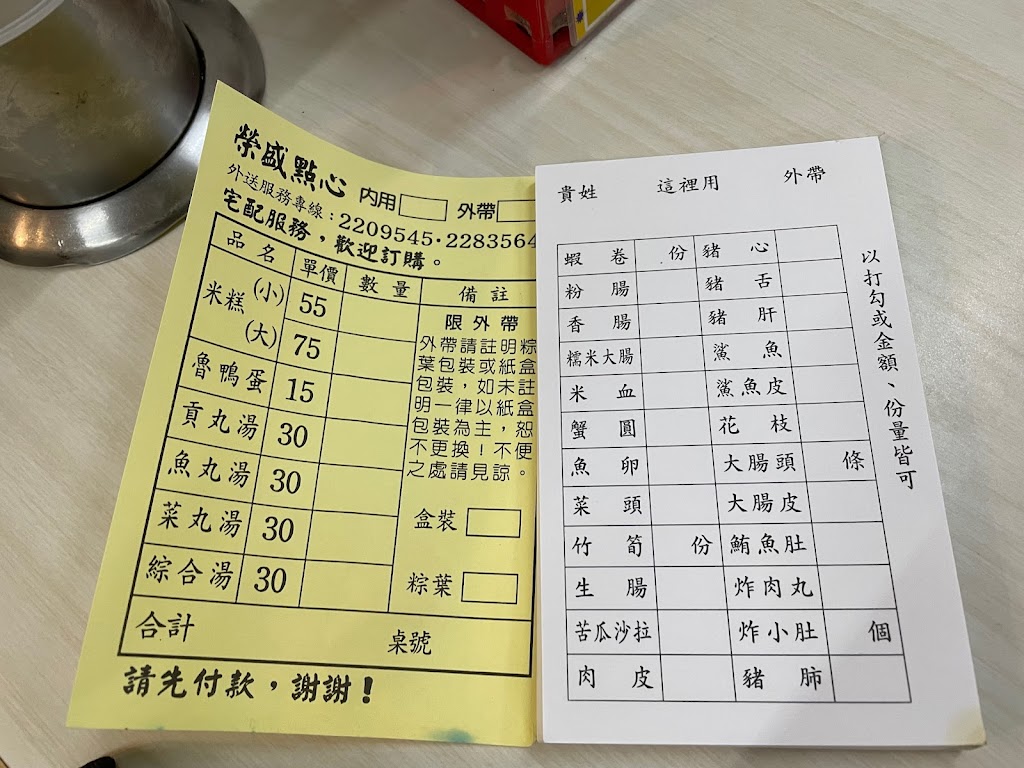 榮盛點心 內用 外帶
外送服務專線：2209545·2283564
宅配服務，歡迎訂購。
品名 單價 數量 備註
米糕 (小) 55
(大) 75
魯鴨蛋 15
貢丸湯 30
魚丸湯 30
菜丸湯 30
綜合湯 30
限外帶
外帶請註明粽
葉包裝或紙盒
包裝，如未註
明一律以紙盒
包裝為主，恕
不更換！不便
之處請見諒。
盒裝
粽葉
合計 桌號
請先付款，謝謝！
貴姓 這裡用 外帶
蝦卷 份 豬心
粉腸 豬舌
香腸 豬肝
糯米大腸 鯊魚
米血 鯊魚皮
蟹圓 花枝
魚卵 大腸頭 條
菜頭 大腸皮
竹筍 份 鮪魚肚
生腸 炸肉丸
苦瓜沙拉 炸小肚 個
肉皮 豬肺
以打勾或金額、份量皆可